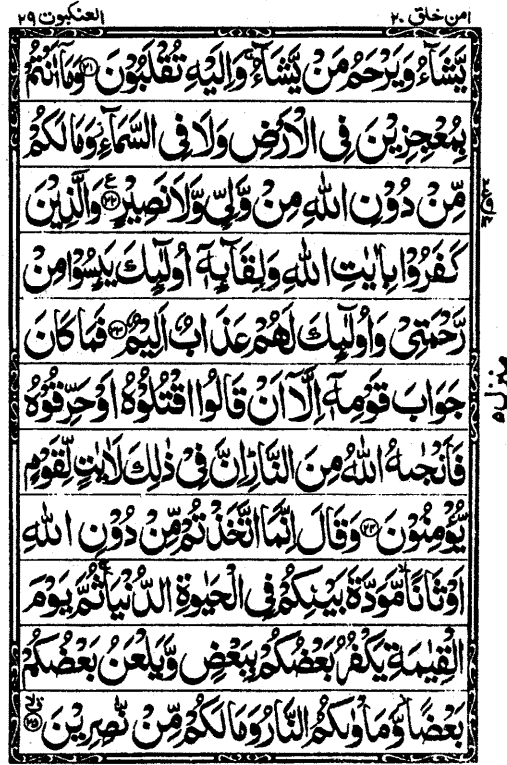 امن خلق ٢٠
العنكبوت ٢٩
يَّشَآءُ وَيَرْحَمُ مَنْ يَّشَآءُ ۚ وَاِلَيْهِ تُقْلَبُوْنَ ﴿٢١﴾ وَمَآ اَنْتُمْ
بِمُعْجِزِيْنَ فِى الْاَرْضِ وَلَا فِى السَّمَآءِ ۫ وَمَا لَكُمْ
مِّنْ دُوْنِ اللّٰهِ مِنْ وَّلِىٍّ وَّلَا نَصِيْرٍ ﴿٢٢﴾ ع وَالَّذِيْنَ
كَفَرُوْا بِاٰيٰتِ اللّٰهِ وَلِقَآئِهٖٓ اُولٰٓئِكَ يَئِسُوْا مِنْ
رَّحْمَتِىْ وَاُولٰٓئِكَ لَهُمْ عَذَابٌ اَلِيْمٌ ﴿٢٣﴾ فَمَا كَانَ
جَوَابَ قَوْمِهٖٓ اِلَّآ اَنْ قَالُوا اقْتُلُوْهُ اَوْ حَرِّقُوْهُ
فَاَنْجٰىهُ اللّٰهُ مِنَ النَّارِ ؕ اِنَّ فِىْ ذٰلِكَ لَاٰيٰتٍ لِّقَوْمٍ
يُّؤْمِنُوْنَ ﴿٢٤﴾ وَقَالَ اِنَّمَا اتَّخَذْتُمْ مِّنْ دُوْنِ اللّٰهِ
اَوْثَانًا ۙ مَّوَدَّةَ بَيْنِكُمْ فِى الْحَيٰوةِ الدُّنْيَا ۚ ثُمَّ يَوْمَ
الْقِيٰمَةِ يَكْفُرُ بَعْضُكُمْ بِبَعْضٍ وَّيَلْعَنُ بَعْضُكُمْ
بَعْضًا ۫ وَّمَاْوٰىكُمُ النَّارُ وَمَا لَكُمْ مِّنْ نّٰصِرِيْنَ ﴿٢٥﴾
منزل ٥